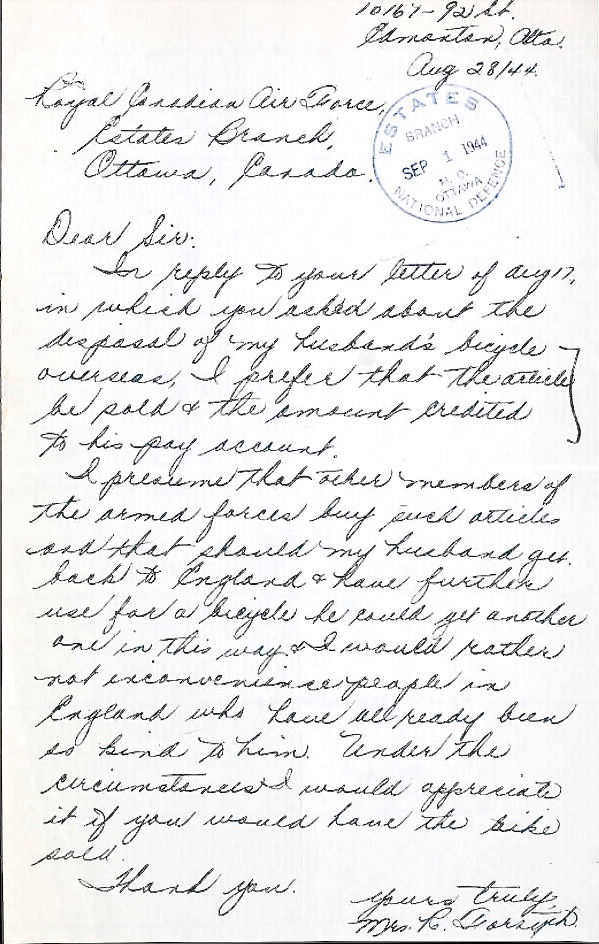 10167-92 St.
Edmonton, Alta.
Aug 28/44.
Royal Canadian Air Force,
Estates Branch,
Ottawa, Canada.
ESTATES
BRANCH
SEP 1 1944
H.Q.
OTTAWA
NATIONAL DEFENCE
Dear Sir:
In reply to your letter of Aug 17,
in which you asked about the
disposal of my husband's bicycle
overseas, I prefer that the article
be sold & the amount credited
to his pay account.
I presume that other members of
the armed forces buy such articles
and that should my husband get
back to England & have further
use for a bicycle he could get another
one in this way & I would rather
not inconvenience people in
England who have all ready been
so kind to him. Under the
circumstances I would appreciate
it if you would have the bike
sold.
Thank you.
Yours truly,
Mrs. C. Forsyth.